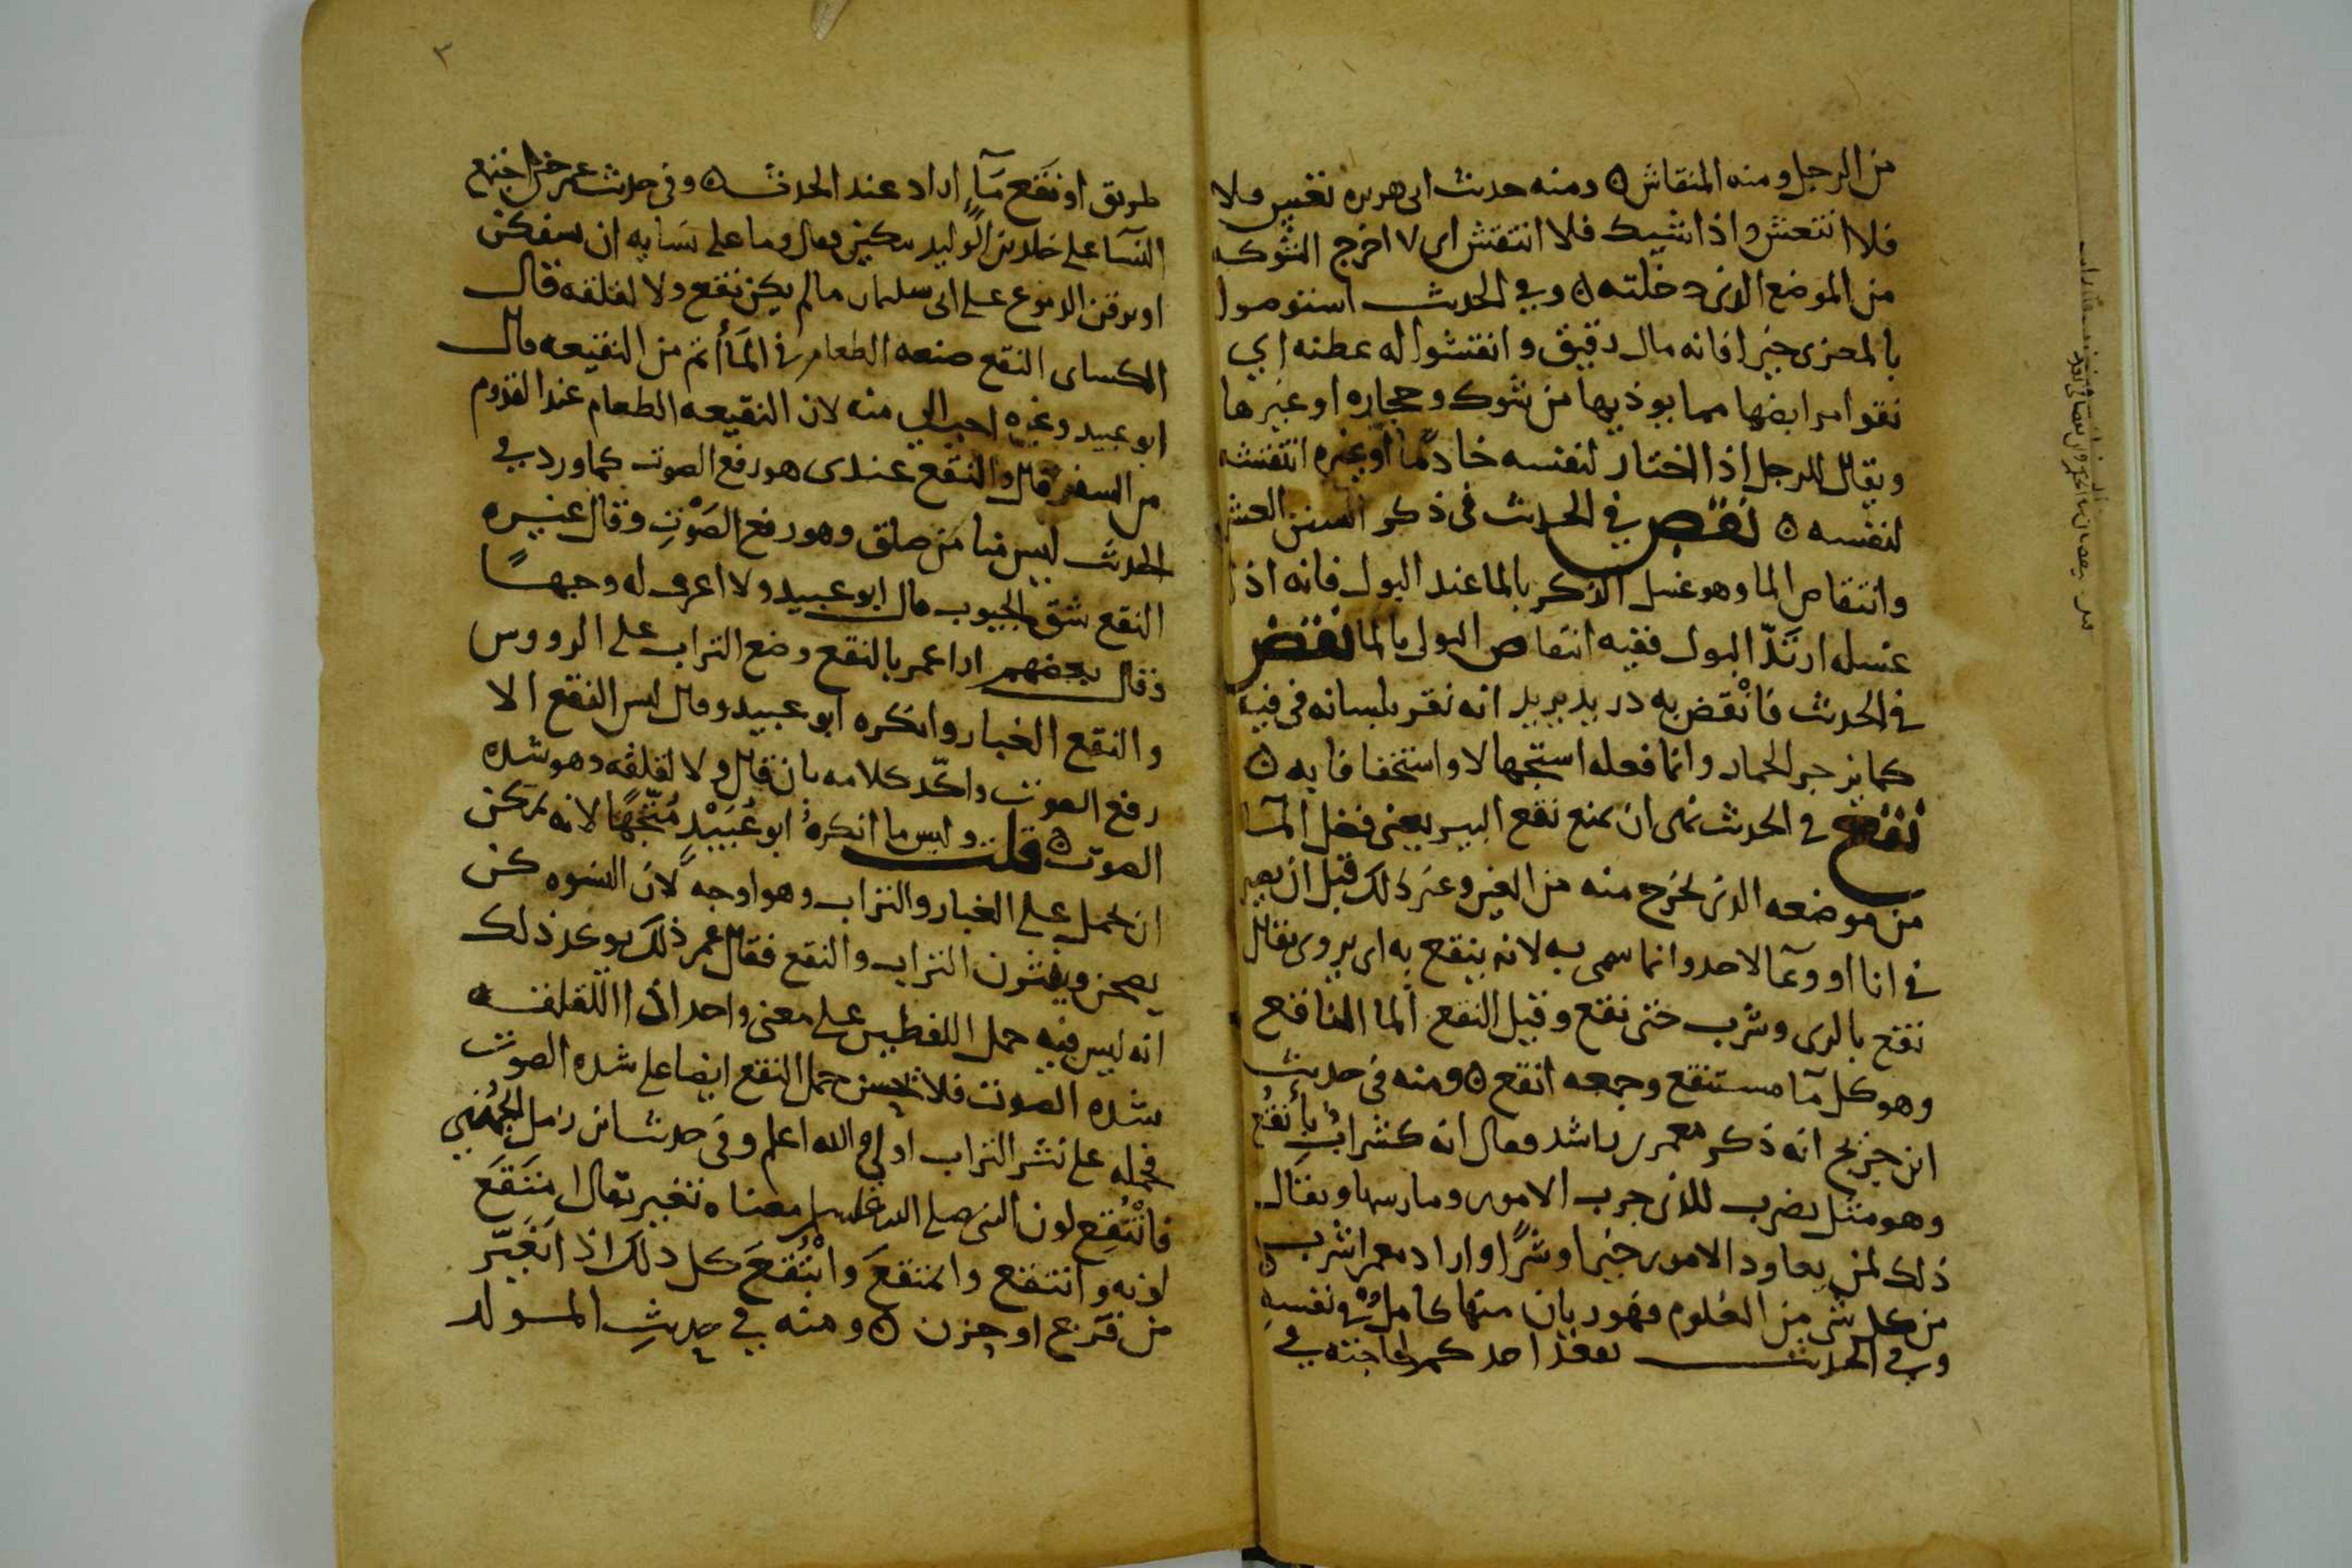 من الرجل ومنه المنقاش ۞ ومنه حديث ابى هريره تعس ولا
فلا انتعش واذا شيك فلا انتقش اى لا اخرج الشوكه
من الموضع الذى دخلته ۞ وفي الحديث استوصوا
بالمعزى خيرا فانه مال رقيق وانقشوا له عطنه اي
نقوا مرابضها مما يوذيها من شوك وحجاره او غيرها
ويقال للرجل اذا اختار لنفسه خادمًا او غيره انتقشه
لنفسه ۞ نقص في الحديث فى ذكر السنن العشر
وانتقاص الما وهو غسل الذكر بالما عند البول فانه اذا
غسله ارتدّ البول ففيه انتقاص البول بالما نقض
في الحديث فانْقض به دريد يريد انه نقر بلسانه فى فيه
كما يزجر الحمار وانما فعله استجهالا واستخفافا به ۞
نقع فى الحديث نهى ان يمنع نقع البير يعنى فضل المآ
من موضعه الذى يخرج منه من العين وغير ذلك قبل ان يصير
فى انا او وعآ لاحد وانما سمى به لانه ينقع به اى يروى يقال
نقع بالرى وشرب حتى نقع وقيل النقع الما الناقع
وهو كل مآ مستنقع وجمعه انقع ۞ ومنه فى حديث
ابن جريج انه ذكر معمر بن راشد فقال انه كشرابٌ بأنقُع
وهو مثل يضرب للذى جرب الامور ومارسها ويقال
ذلك لمن يعاود الامور خيرا وشرًا واراد معمرا شرب
من كل شى من العلوم فهو ريان منها كامل فى نفسه
وفي الحديث يقعد احدكم لحاجته في
٣
طريق او نقع مآء اراد عند الحدث ۞ وفى حديث عمر حين اجتمع
النسآ على خلد بن الوليد يبكين فقال وما على نسايه ان يسفكن
او يرقن الدموع على ابى سليمان ما لم يكن نقع ولا لقلقه قال
الكساى النقع صنعه الطعام فى المأتم من النقيعه قال
ابو عبيد وغيره احب الي منه لان النقيعه الطعام عند القدوم
من السفر قال والنقع عندى هو رفع الصوت كما ورد في
الحديث ليس منا من صلق وهو رفع الصَوْت وقال غيره
النقع شق الجيوب قال ابو عبيد ولا اعرف له وجهًا
وقال بعضهم اراد عمر بالنقع وضع التراب على الرووس
والنقع الغبار وانكره ابو عبيد وقال ليس النقع الا
رفع الصوت واكّد كلامه بان قال ولا لقلقه وهو شده
الصوت ۞ قلت وليس ما انكرهُ ابو عُبَيْدٍ مُتّجهًا لانه يمكن
ان يحمل على الغبار والتراب وهو اوجه لان النسوه كن
يصحن ويحثون التراب والنقع فقال عمر ذلك يوكد ذلك
انه ليس فيه حمل اللفظين على معنى واحد لان اللقلقه
شده الصوت فلا يحسن حمل النقع ايضا على شده الصوت
فحمله على نشر التراب اولى والله اعلم وفى حديث ابن زمل الجُهَني
فانْتُقِع لون النبى صلى الله عليه وسلم معناه تغير يقال امتَقَع
لونه وانتقع وامتقعَ وابْتُقعَ كل ذلك اذا تغيّر
من فزع او حزن ۞ ومنه في حديثِ المولد